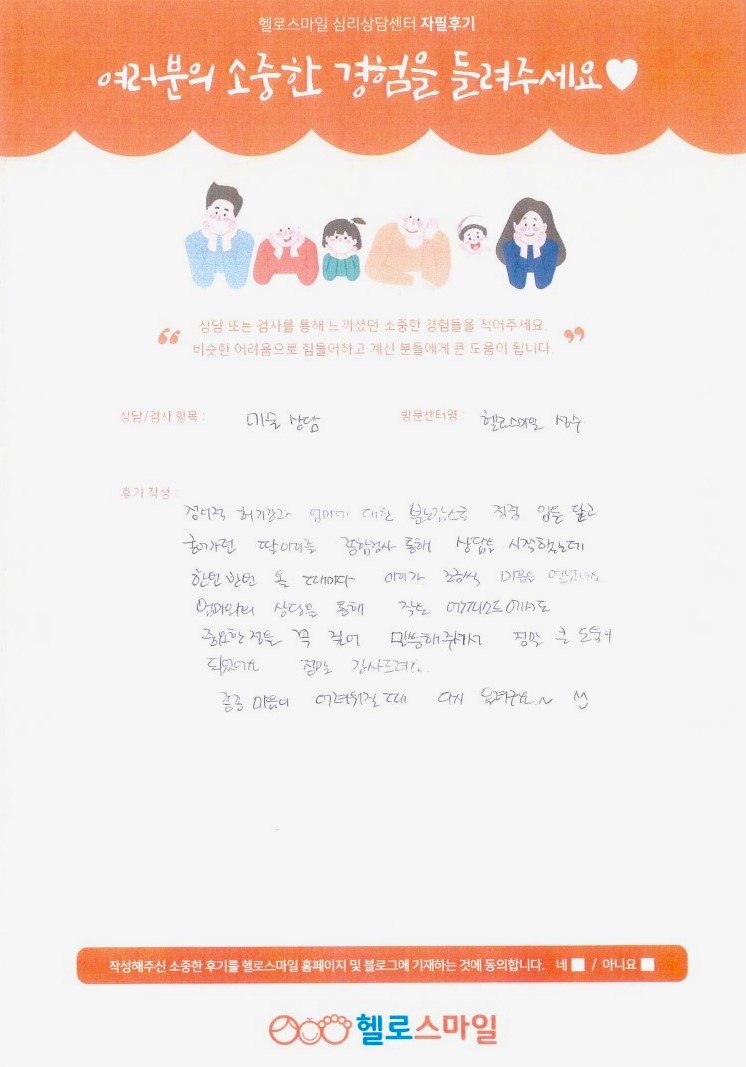 헬로스마일 심리상담센터 자필후기
여러분의 소중한 경험을 들려주세요♥
“ 상담 또는 검사를 통해 느끼셨던 소중한 경험들을 적어주세요.
비슷한 어려움으로 힘들어하고 계신 분들에게 큰 도움이 됩니다. ”
상담/검사 항목 : 미술 상담
방문센터명 : 헬로스마일 성수
후기 작성 :
정서적 허기짐과 엄마에 대한 분노감으로 입을 닫고
딸아이를 종합검사 통해 상담을 시작했는데
한번 한번 올 때마다 아이가 조금씩 마음을 열었어요
엄마와의 상담을 통해 작은 에서도
중요한 점을 꼭 집어 말씀해주셔서 정말 큰 도움이
되었어요 정말 감사드려요.
종종 마음이 어려워질 때 다시 올려구요~
작성해주신 소중한 후기를 헬로스마일 홈페이지 및 블로그에 기재하는 것에 동의합니다. 네 ■ / 아니요 ■
헬로스마일